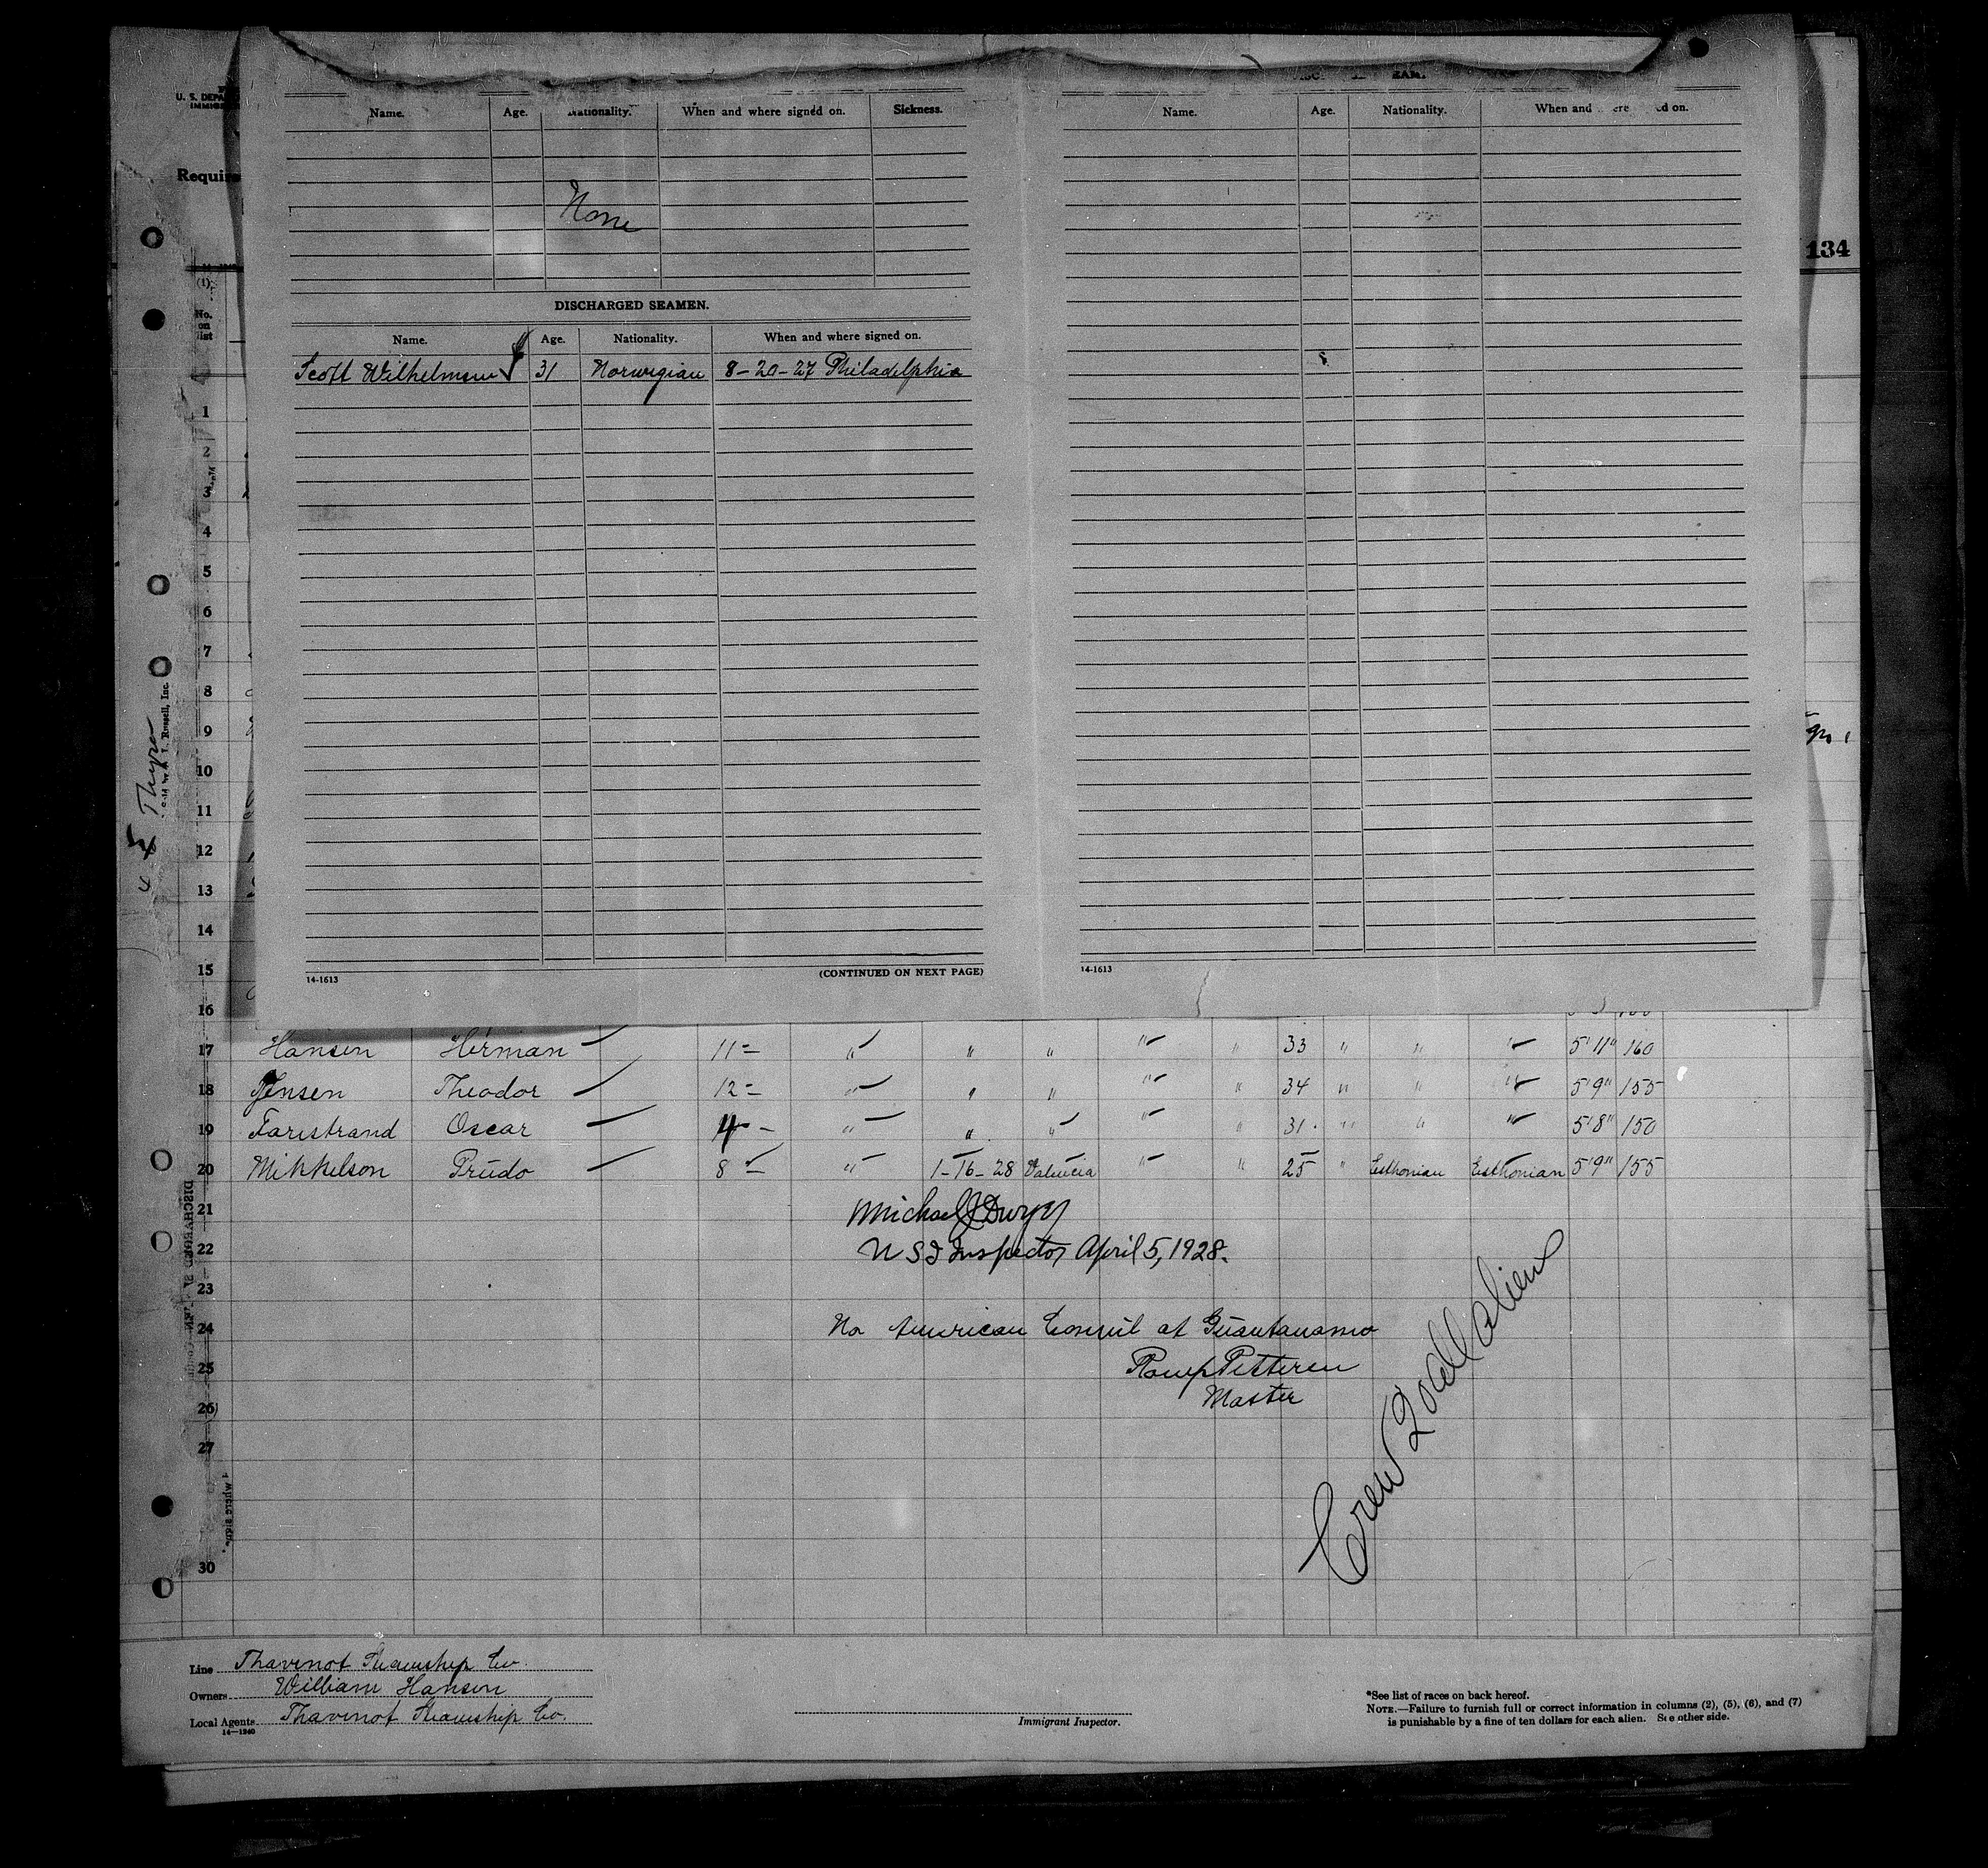 U. S. DEPA
IMMIG
Requir
134
Name. Age. Nationality. When and where signed on. Sickness.
None
DISCHARGED SEAMEN.
Name. Age. Nationality. When and where signed on.
Scott Wilhelmsen 31 Norwegian 8-20-27 Philadelphia
14-1613 (CONTINUED ON NEXT PAGE)
Name. Age. Nationality. When and ere ed on.
14-1613
(1)
No.
on
list
1
2
3
4
5
6
7
8
9
10
11
12
13
14
15
16
17 Hansen Herman 11 - " " " " " 33 " " " 5'11" 160
18 Jensen Theodor 12 - " " " " " 34 " " " 5'9" 155
19 Farestrand Oscar 4 - " " " " " 31 " " " 5'8" 150
20 Mikkelson Prudo 8 - " 1-16-28 Valencia " " 25 " Esthonian Esthonian 5'9" 155
21 Michael J Dwyer
22 U S I Inspector April 5, 1928.
23
24 No American Consul at Guantanamo
25 Petteren
26 Master
27
30
Crew 20 all aliens
Thyra
Line Thavenot Steamship Co.
Owners William Hansen
Local Agents Thavenot Steamship Co.
14-1240
Immigrant Inspector.
*See list of races on back hereof.
NOTE.—Failure to furnish full or correct information in columns (2), (5), (6), and (7)
is punishable by a fine of ten dollars for each alien. See other side.